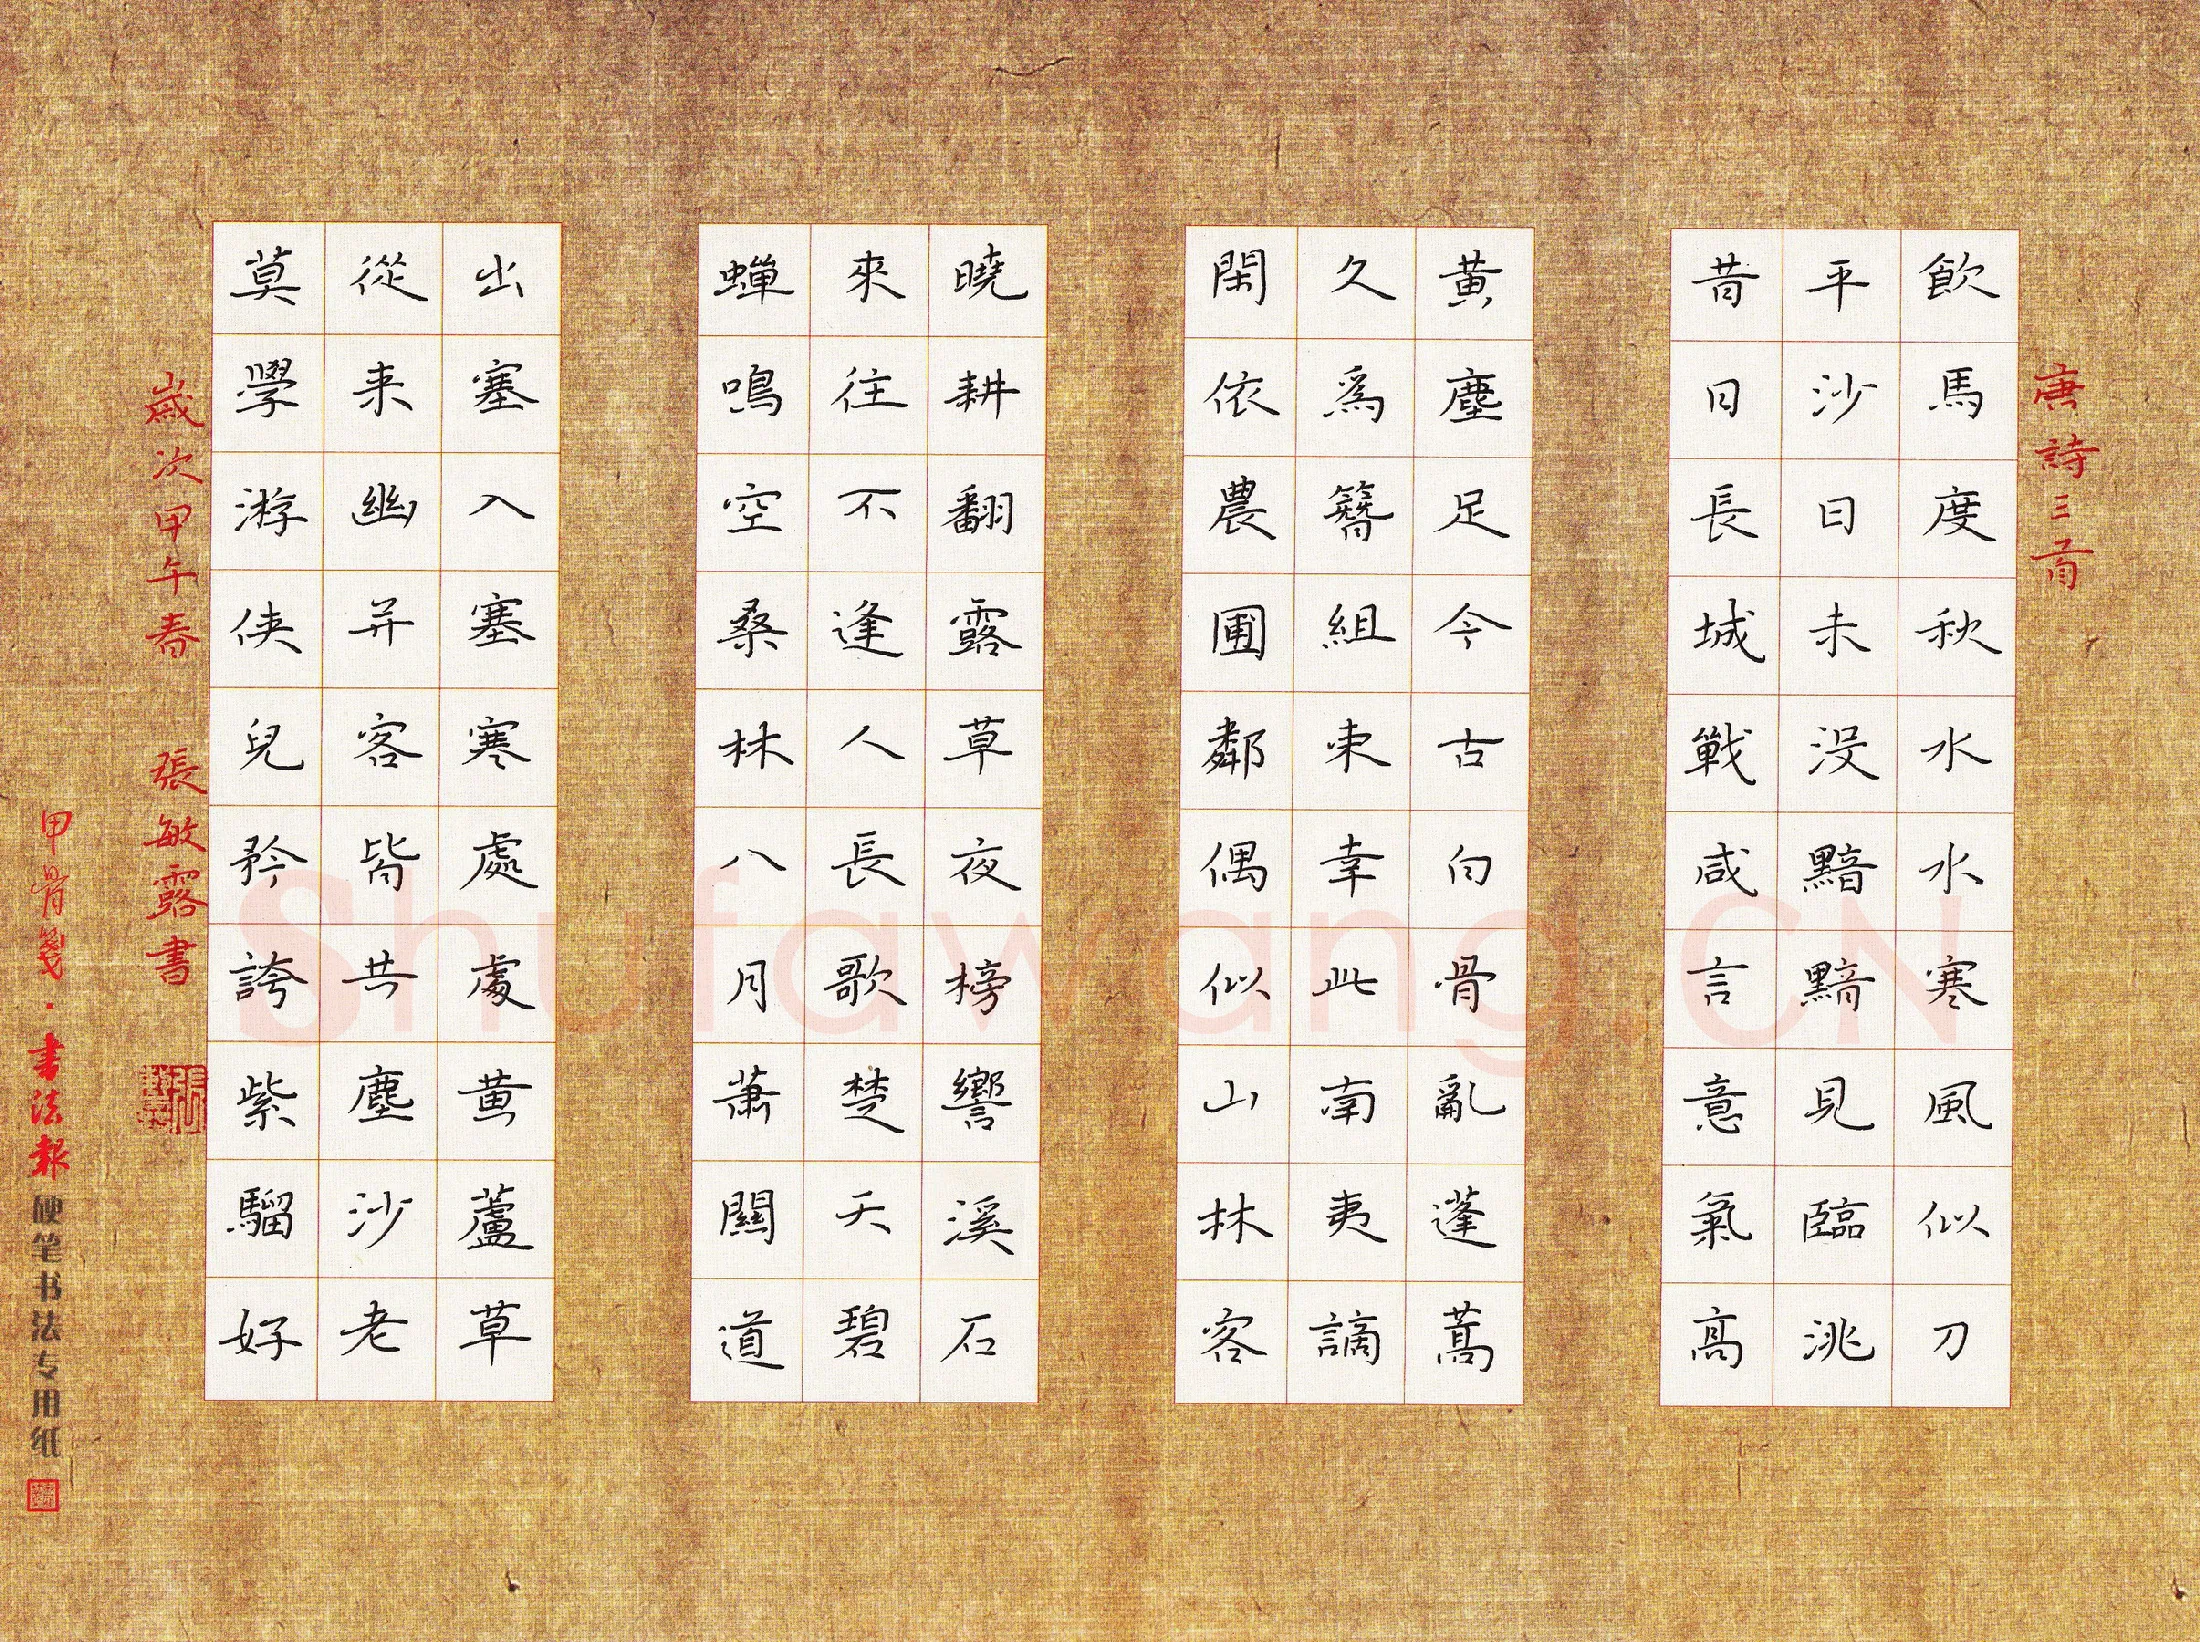 唐詩三首
飲馬度秋水水寒風似刀
平沙日未没黯黯見臨洮
昔日長城戰咸言意氣高
黃塵足今古白骨亂蓬蒿
久爲簪組束幸此南夷謫
閑依農圃鄰偶似山林客
曉耕翻露草夜榜響溪石
來往不逢人長歌楚天碧
蟬鳴空桑林八月蕭關道
出塞入塞寒處處黃蘆草
從来幽并客皆共塵沙老
莫學游俠兒矜誇紫騮好
歲次甲午春 張敏露書
甲骨箋·書法報 硬笔书法专用纸
Shufawang.CN